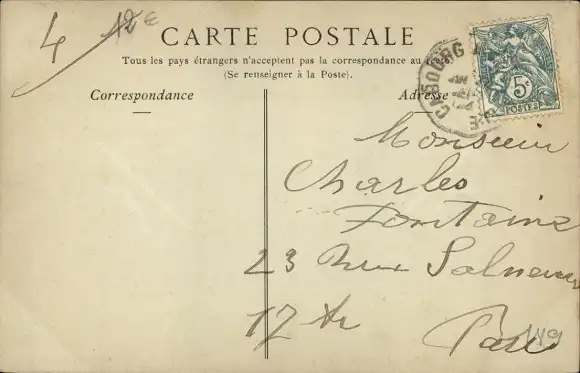 4
12e
CARTE POSTALE
Tous les pays étrangers n'acceptent pas la correspondance au
(Se renseigner à la Poste).
Correspondance
Adresse
CABOURG
5c
POSTES
Monsieur
Charles
Fontaine
23 Rue Salneuve
17 Ar
Paris
149